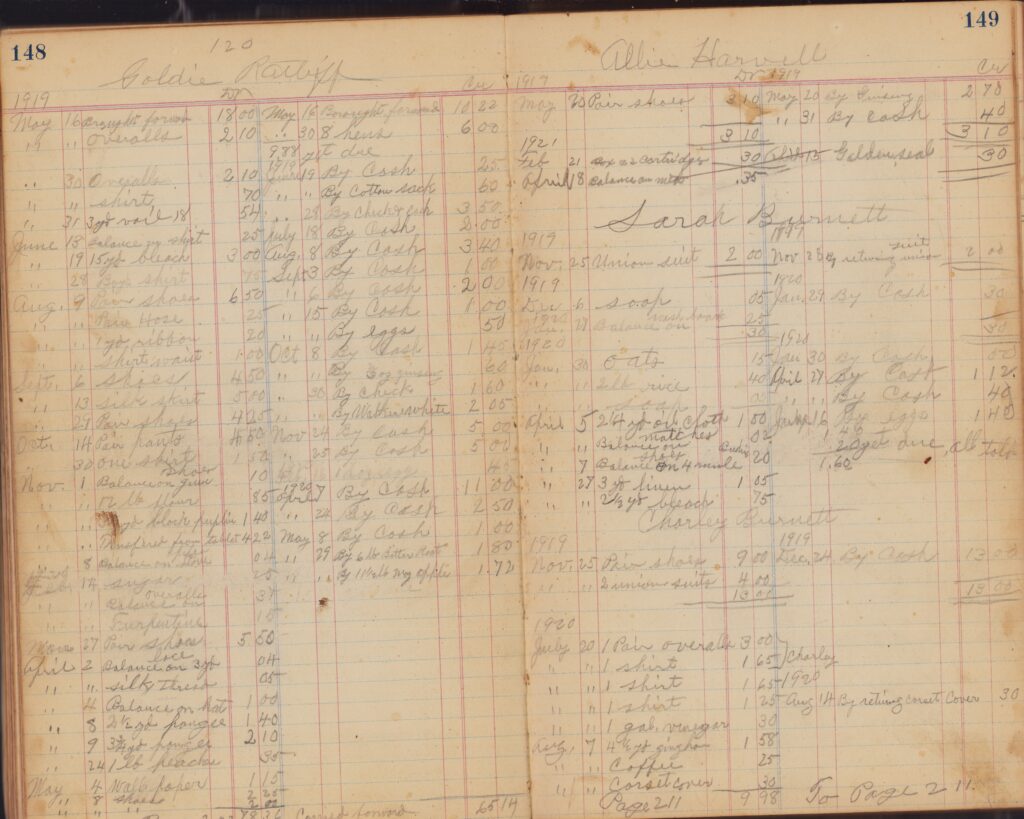 148
120
Goldie Ratliff
1919 Dr Cr
May 16 Brought forward 18 00 May 16 Brought forward 10 22
" " Overalls 2 10 " 30 8 hens 6 00
9.88 yet due
1919
" 30 Overalls 2 10 June 19 By Cash 25
" " shirt 70 " " By Cotton sack 60
" 31 3 yd voil 18 54 " 28 By Check & Cash 3 50
June 13 Balance on shirt 25 July 18 By Cash 2 00
" 19 15 yd bleach 3 00 Aug. 8 By Cash 3 40
" 28 Boys shirt 75 Sept 3 By Cash 1 00
Aug. 9 Pair shoes 6 50 " 6 By Cash 2 00
" " Pair Hose 25 " 15 By Cash 1 00
" " 1 yd ribbon 20 " " By eggs 50
" " Shirt waist 1 00 Oct 8 By Cash 1 45
Sept. 6 Shoes 4 50 " " By ginseng 60
" 13 silk skirt 5 00 " 30 By Check 1 60
" 29 Pair shoes 4 25 " " By Watkins White 2 05
Oct. 14 Pair pants 4 50 Nov 24 By Cash 5 00
30 one shirt " 25 By Cash 5 00
Nov. 1 Balance on shoes 10
1920
" 12 lb flour 85 April 7 By Cash 11 00
" yd black poplin 1 40 " 24 By Cash 2 50
" Transfered from tablet 4 22 May 8 By Cash 1 00
8 Balance on 04 " 29 By 6 lb Bitter Root 1 80
14 sugar 25 " " By 11 lb may apple 1.72
" " Balance on overalls
" " Turpentine 15
Mar 27 Pair shoes 5 50
April 2 Balance on 3 yd lace 04
" " silk thread 05
" 4 Balance on hat 1 00
" 8 2 1/2 yd pongee 1 40
" 9 3 3/4 yd pongee 2 10
" 24 1 lb peaches 35
May 4 Wall paper 1 15
" 8 shoes 2 25
Carried forward 65 14
149
Allie Harvell
1919 Dr 1919 Cr
May 20 Pair shoes 3 10 May 20 By Ginseng 2 70
" 31 By Cash 40
3 10 3 10
1921
Feb 21 Box 22 Cartridges 30 13 Goldenseal 30
April 8 Balance on 35
Sarah Burnett
1919 1919
Nov. 25 Union suit 2 00 Nov 28 By retiring union suit 2 00
1919 1920
Dec 6 soap 05 Jan. 29 By Cash 30
1920
Jan. 29 Balance on wash board 25
30 30
1920 1920
Jan. 30 Oats 15 Jan 30 By Cash
" " 2 lb rice 40 April 27 By Cash 1 12
" " soap " " By Cash 40
April 5 2 1/4 yd oil cloth 1 00 June 16 By eggs 1 40
" " matches 02
" " Balance on shoes 20 20 yet due, all told
" 7 Balance on 4 1.60
" 27 3 yd linen 1 05
" " 2 1/2 yd bleach 75
Charley Burnett
1919 1919
Nov. 25 Pair shoes 9 00 Dec. 24 By Cash 13 00
" " 2 union suits 4 00
13 00 13 00
1920
July 20 1 Pair overalls 3 00
" " 1 shirt 1 65 Charley
" " 1 shirt 1 65 1920
" " 1 shirt 1 25 Aug 14 By retiring corset cover 30
" " 1 gal. vinegar 30
Aug. 7 4 1/2 yd gingham 1 58
" " Coffee 25
" " Corset cover 30
Page 211 9 98 To Page 211